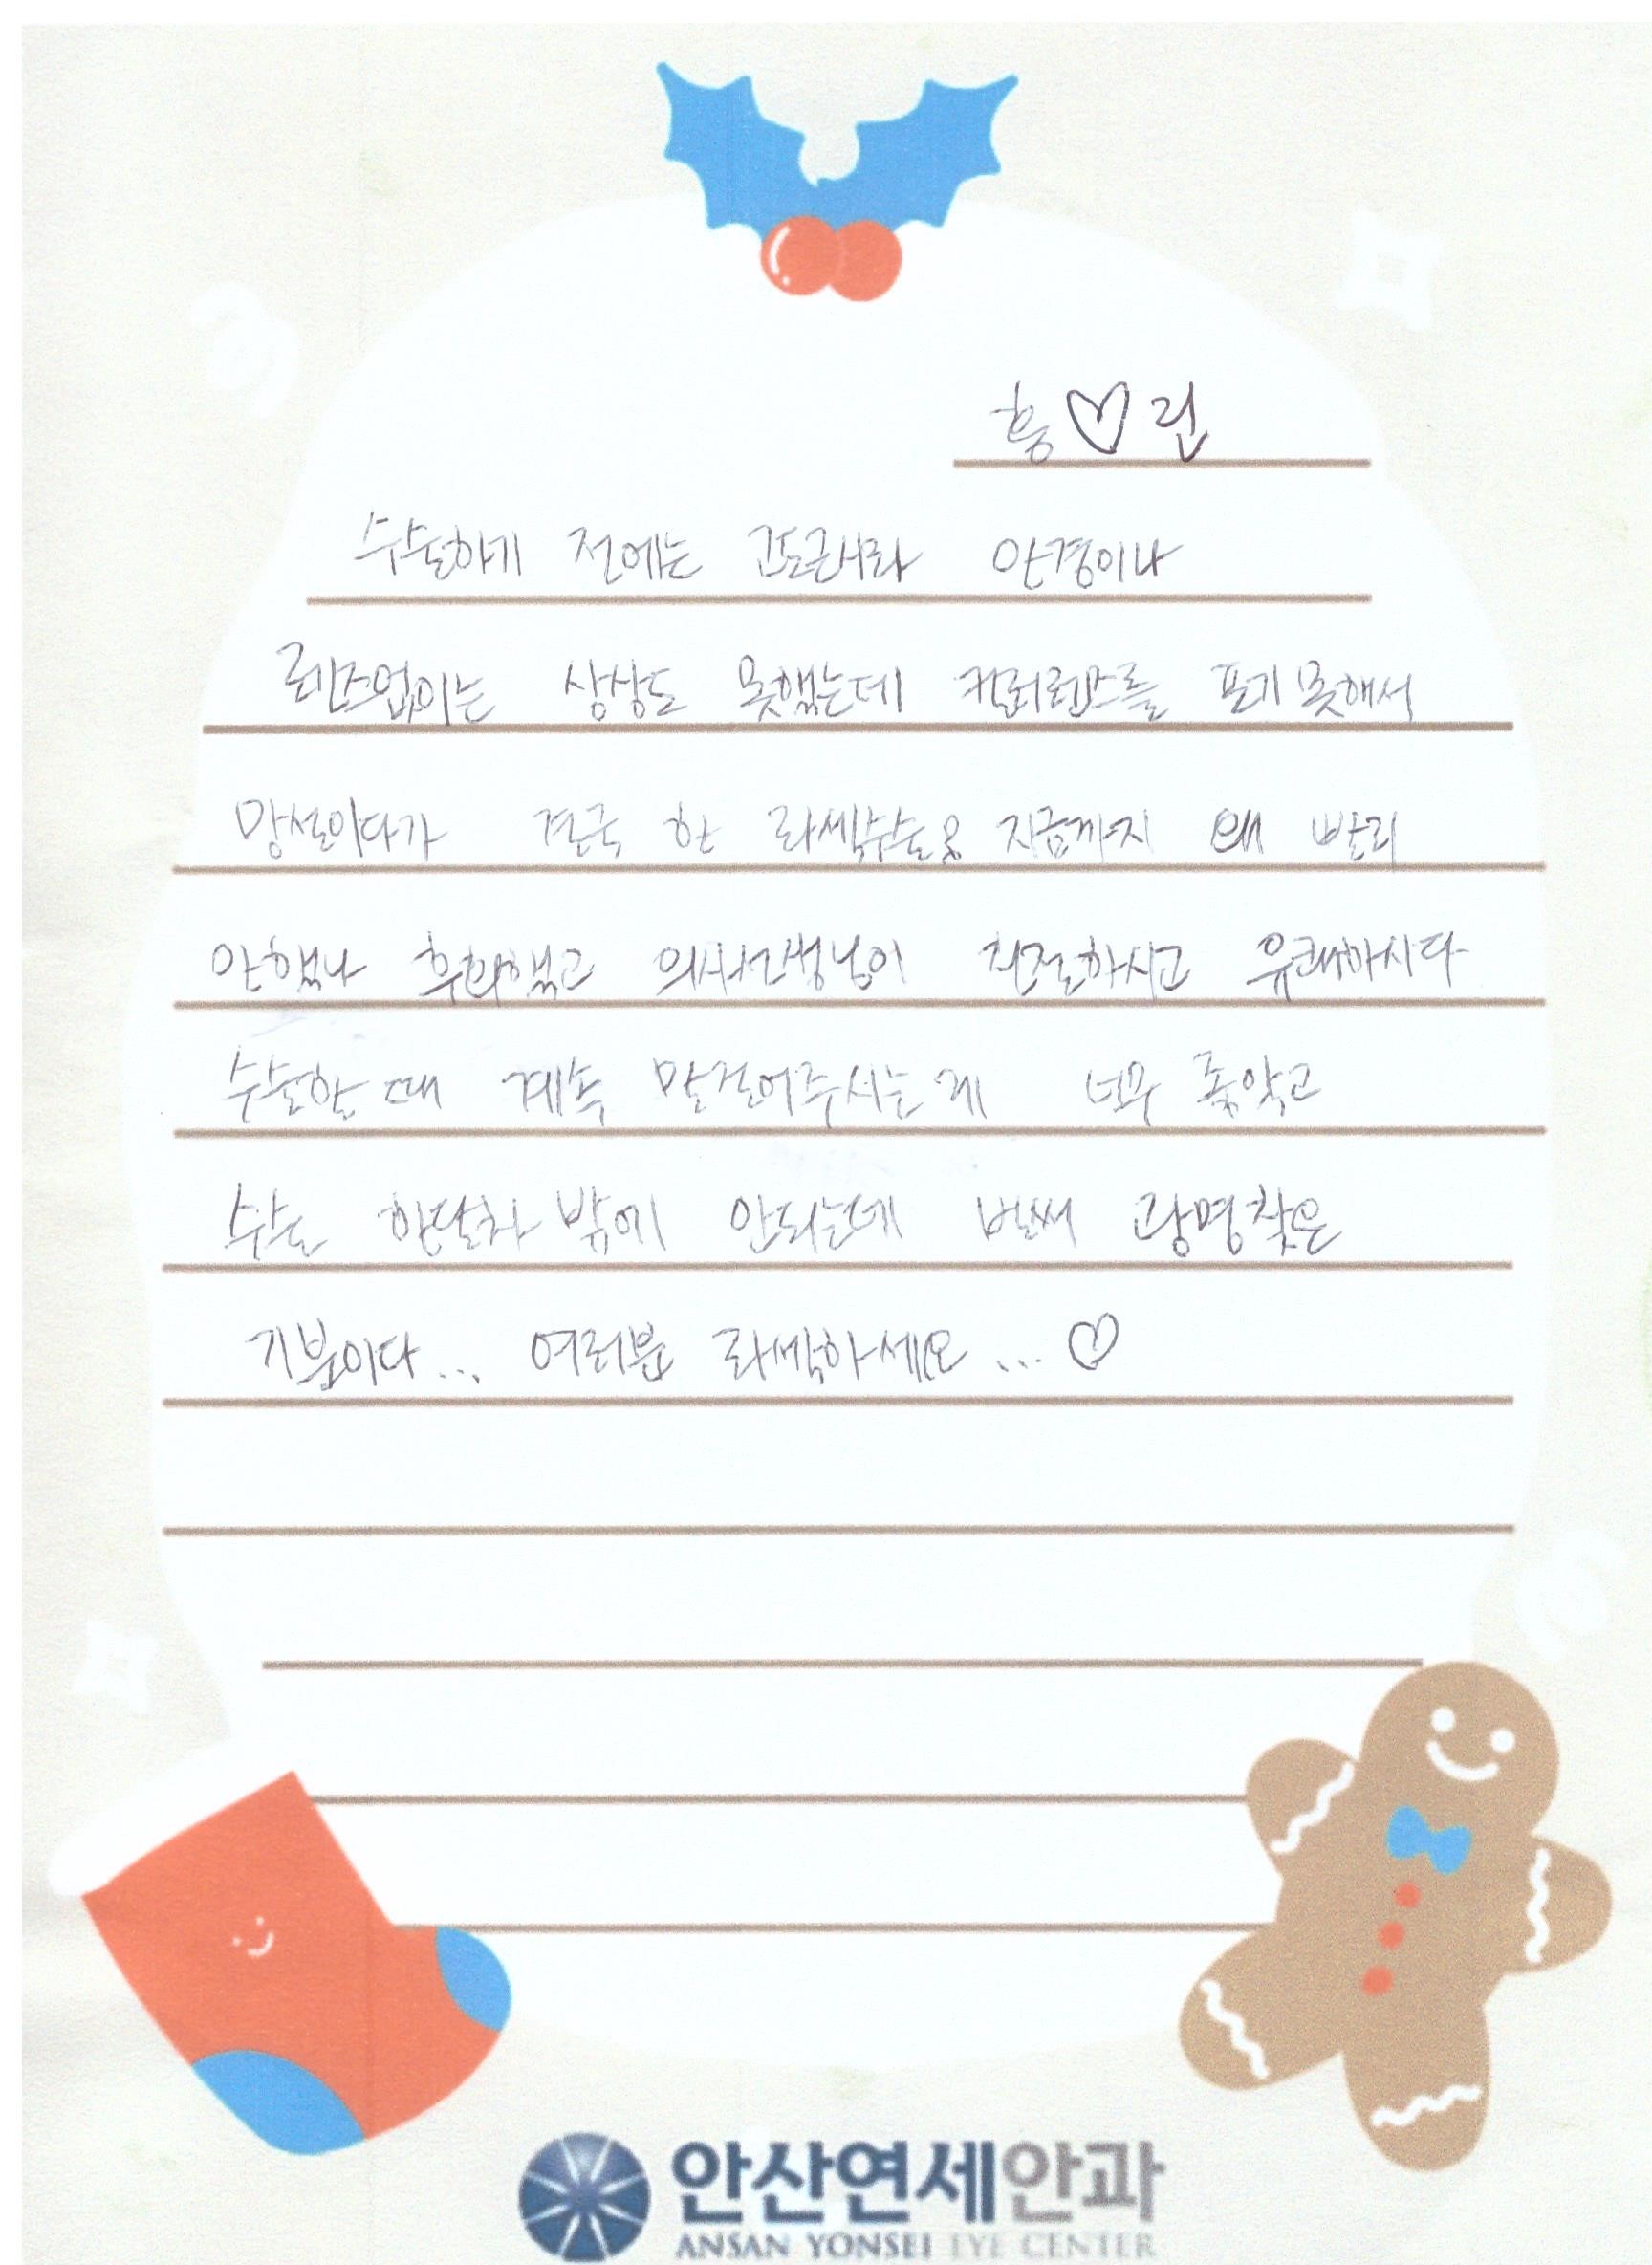 홍♡린
수술하기 전에는 고도근시라 안경이나
렌즈없이는 상상도 못했는데 컬러렌즈를 포기못해서
망설이다가 결국 한 라섹수술을 지금까지 왜 빨리
안했나 후회했고 의사선생님이 친절하시고 유쾌하시다
수술할 때 계속 말걸어주시는게 너무 좋았고
수술 한달차 밖에 안되는데 벌써 광명찾은
기분이다... 여러분 라섹하세요... ♡
안산연세안과
ANSAN YONSEI EYE CENTER